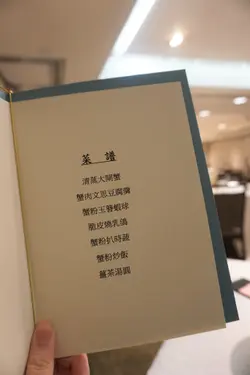 菜譜
清蒸大閘蟹
蟹肉文思豆腐羹
蟹粉玉簪蝦球
脆皮燒乳鴿
蟹粉扒時蔬
蟹粉炒飯
薑茶湯圓